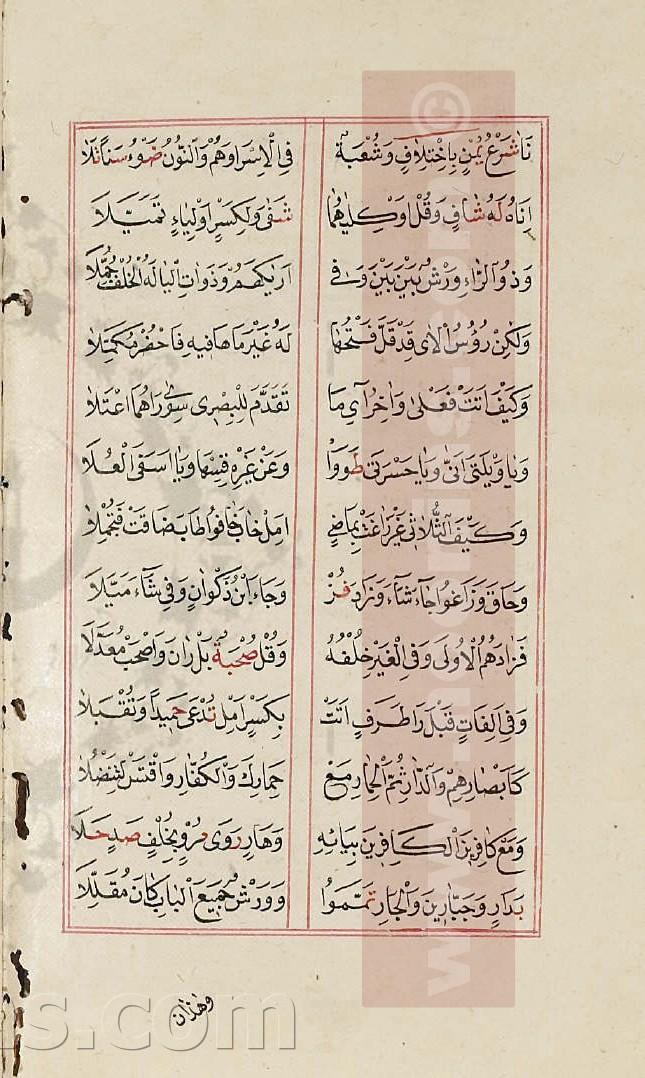 نَا شَرْعُ يُمْنٍ بِاخْتِلَافٍ وَشُعْبَةٌ فِي الْاِسْرَا وَهُمْ وَالنُّونُ ضَوْءُ سَنًا تَلَا
اِنَاهُ لَهُ شَافٍ وَقُلْ اَوْ كِلَاهُمَا شَفَى وَلِكَسْرٍ اَوْلِيَاءٍ تَمَيَّلَا
وَذُو الرَّاءِ وَرْشٌ بَيْنَ بَيْنَ وَفِي اَرَيكَهُمُ وَذَوَاتِ الْيَا لَهُ الْخُلْفُ جُمِّلَا
وَلَكِنْ رُؤُسُ الْاٰىِ قَدْ قَلَّ فَتْحُهَا لَهُ غَيْرَ مَا هَا فِيهِ فَاحْضُرْ مُكَمَّلَا
وَكَيْفَ اَتَتْ فَعْلٰى وَاٰخِرُ اٰيِ مَا تَقَدَّمَ لِلْبِصْرِى سِوٰى رَاهُمَا اعْتَلَا
وَيَا وَيْلَتٰى اَنّٰى وَيَا حَسْرَتٰى طَوَوْا وَعَنْ غَيْرِهِ قِسْهَا وَيَا اَسَفَى الْعُلَا
وَكَيْفَ الثُّلَاثِي غَيْرَ زَاغَتْ بِمَاضِيٍ اَمِلْ خَابَ خَافُوا طَابَ ضَاقَتْ فَتُجْمِلَا
وَحَاقَ وَزَاغُوا جَاءَ شَاءَ وَزَادَ فُزْ وَجَاءَ ابْنُ ذَكْوَانٍ وَفِي شَاءَ مَيَّلَا
فَزَادَهُمُ الْاُولٰى وَفِي الْغَيْرِ خُلْفُهُ وَقُلْ صُحْبَةٌ بَلْ رَانَ وَاصْحَبْ مُعَدَّلَا
وَفِي اَلِفَاتٍ قَبْلَ رَا طَرَفٍ اَتَتْ بِكَسْرٍ اَمِلْ تُدْعٰى حَمِيدًا وَتُقْبَلَا
كَاَبْصَارِهِمْ وَالدَّارِ ثُمَّ الْحِمَارِ مَعْ حِمَارِكَ وَالْكُفَّارِ وَاقْتَسْ لِتَنْضُلَا
وَمَعْ كَافِرِينَ الْكَافِرِينَ بِيَائِهِ وَهَارٍ رَوٰى مُرْوٍ بِخُلْفٍ صَدٍ حَلَا
بَدَارِ وَجَبَّارِينَ وَالْجَارِ تَمَّمُوا وَوَرْشٌ جَمِيعَ الْبَابِ كَانَ مُقَلِّلَا
وهذان